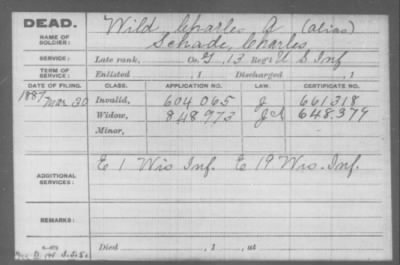 DEAD.
NAME OF SOLDIER:
Wild Charles A (alias)
Schade, Charles
SERVICE:
Late rank, Co. G, 13 Reg't U S Inf
TERM OF SERVICE:
Enlisted , 1 Discharged , 1
DATE OF FILING. CLASS. APPLICATION NO. LAW. CERTIFICATE NO.
1887 Mar 30 Invalid, 604 065 J 661318
Widow, 848 973 648.379
Minor,
ADDITIONAL SERVICES:
E 1 Wis Inf. E 19 Wis. Inf.
REMARKS:
Died , 1 , at